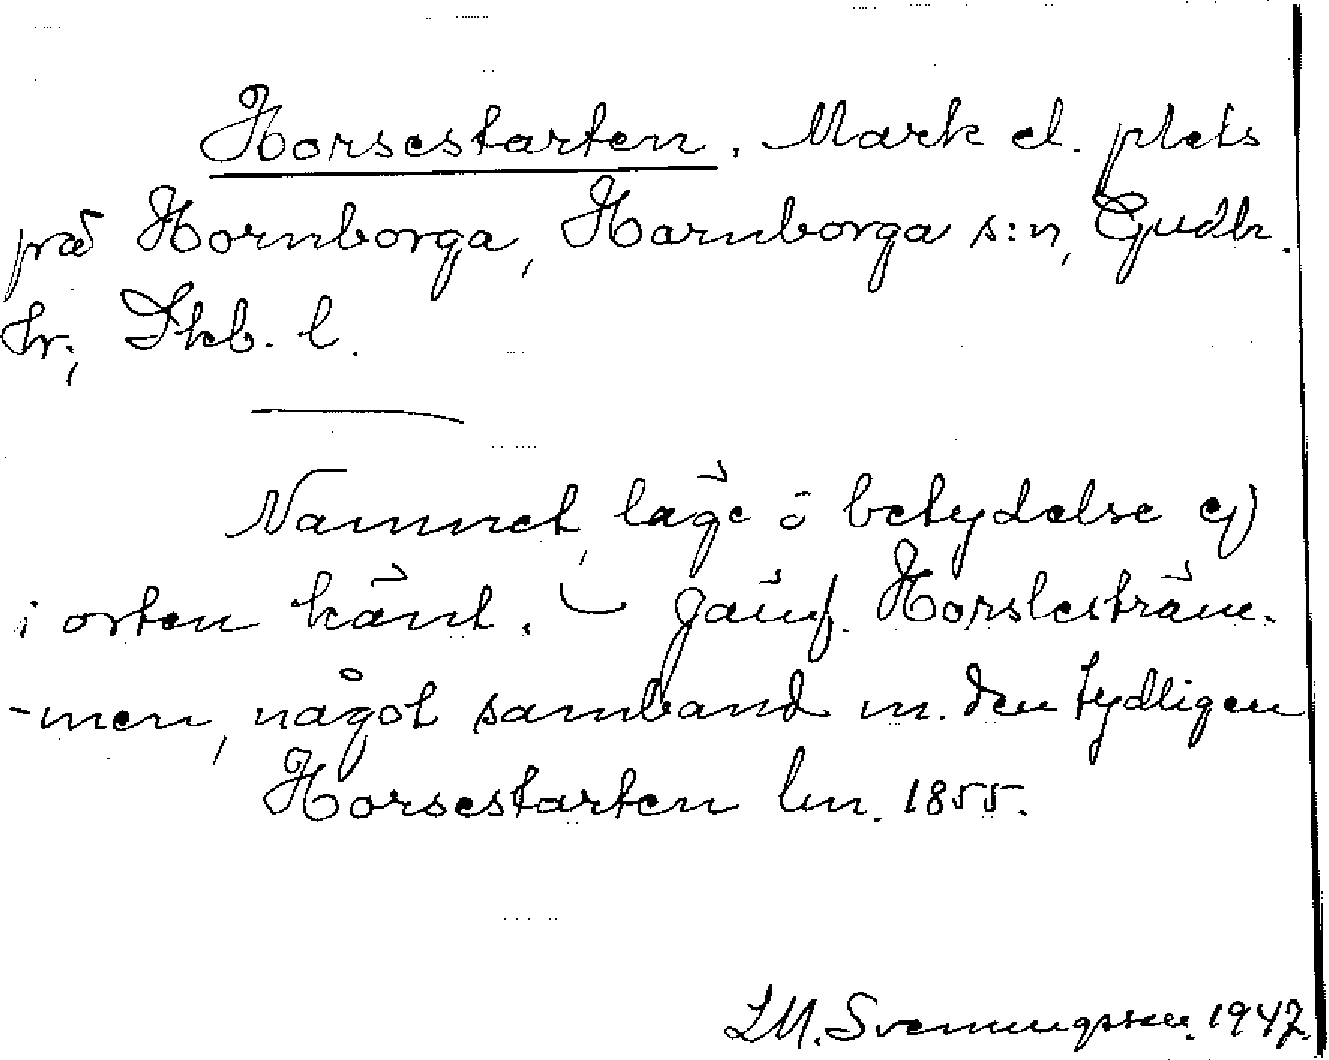 Horsestarten. Mark el. plats
på Hornborga, Hornborga s:n, Gudh.
hr; Skb. l.
Namnet, läge o betydelse ej
i orten känt. – Jämf. Horslesträm-
-men, något samband m. den tydligen
Horsestarten lm. 1855.
I.M. Svenungsson. 1947.